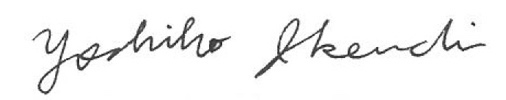 Yoshiko Ikeuchi